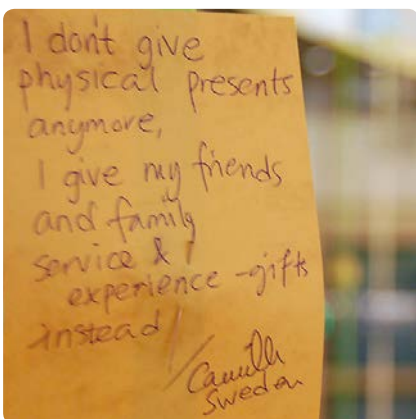 I don't give
physical presents
anymore,
I give my friends
and family
service &
experience-gifts
instead!
/Camilla
Sweden